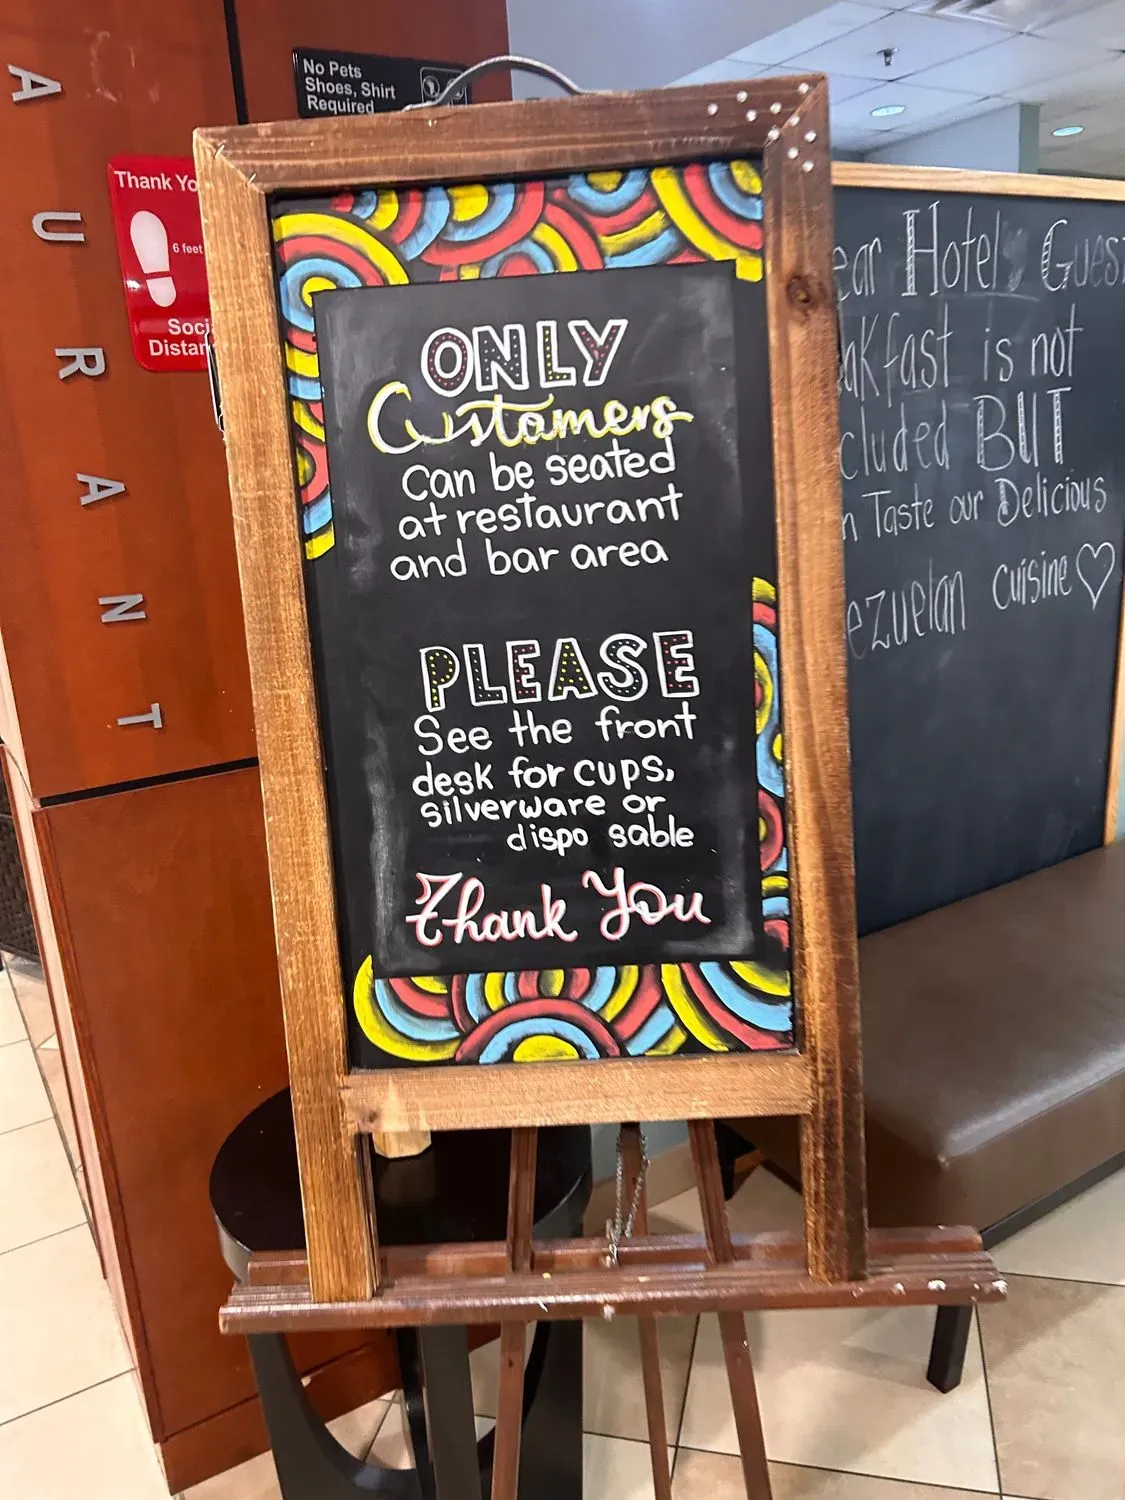 AURANT
No Pets
Shoes, Shirt
Required
Thank Yo
6 feet
Socia
Distan
ONLY
Customers
can be seated
at restaurant
and bar area
PLEASE
See the front
desk for cups,
silverware or
dispo sable
Thank You
ear Hotel Guest
akfast is not
cluded BUT
n Taste our Delicious
ezuelan cuisine♡